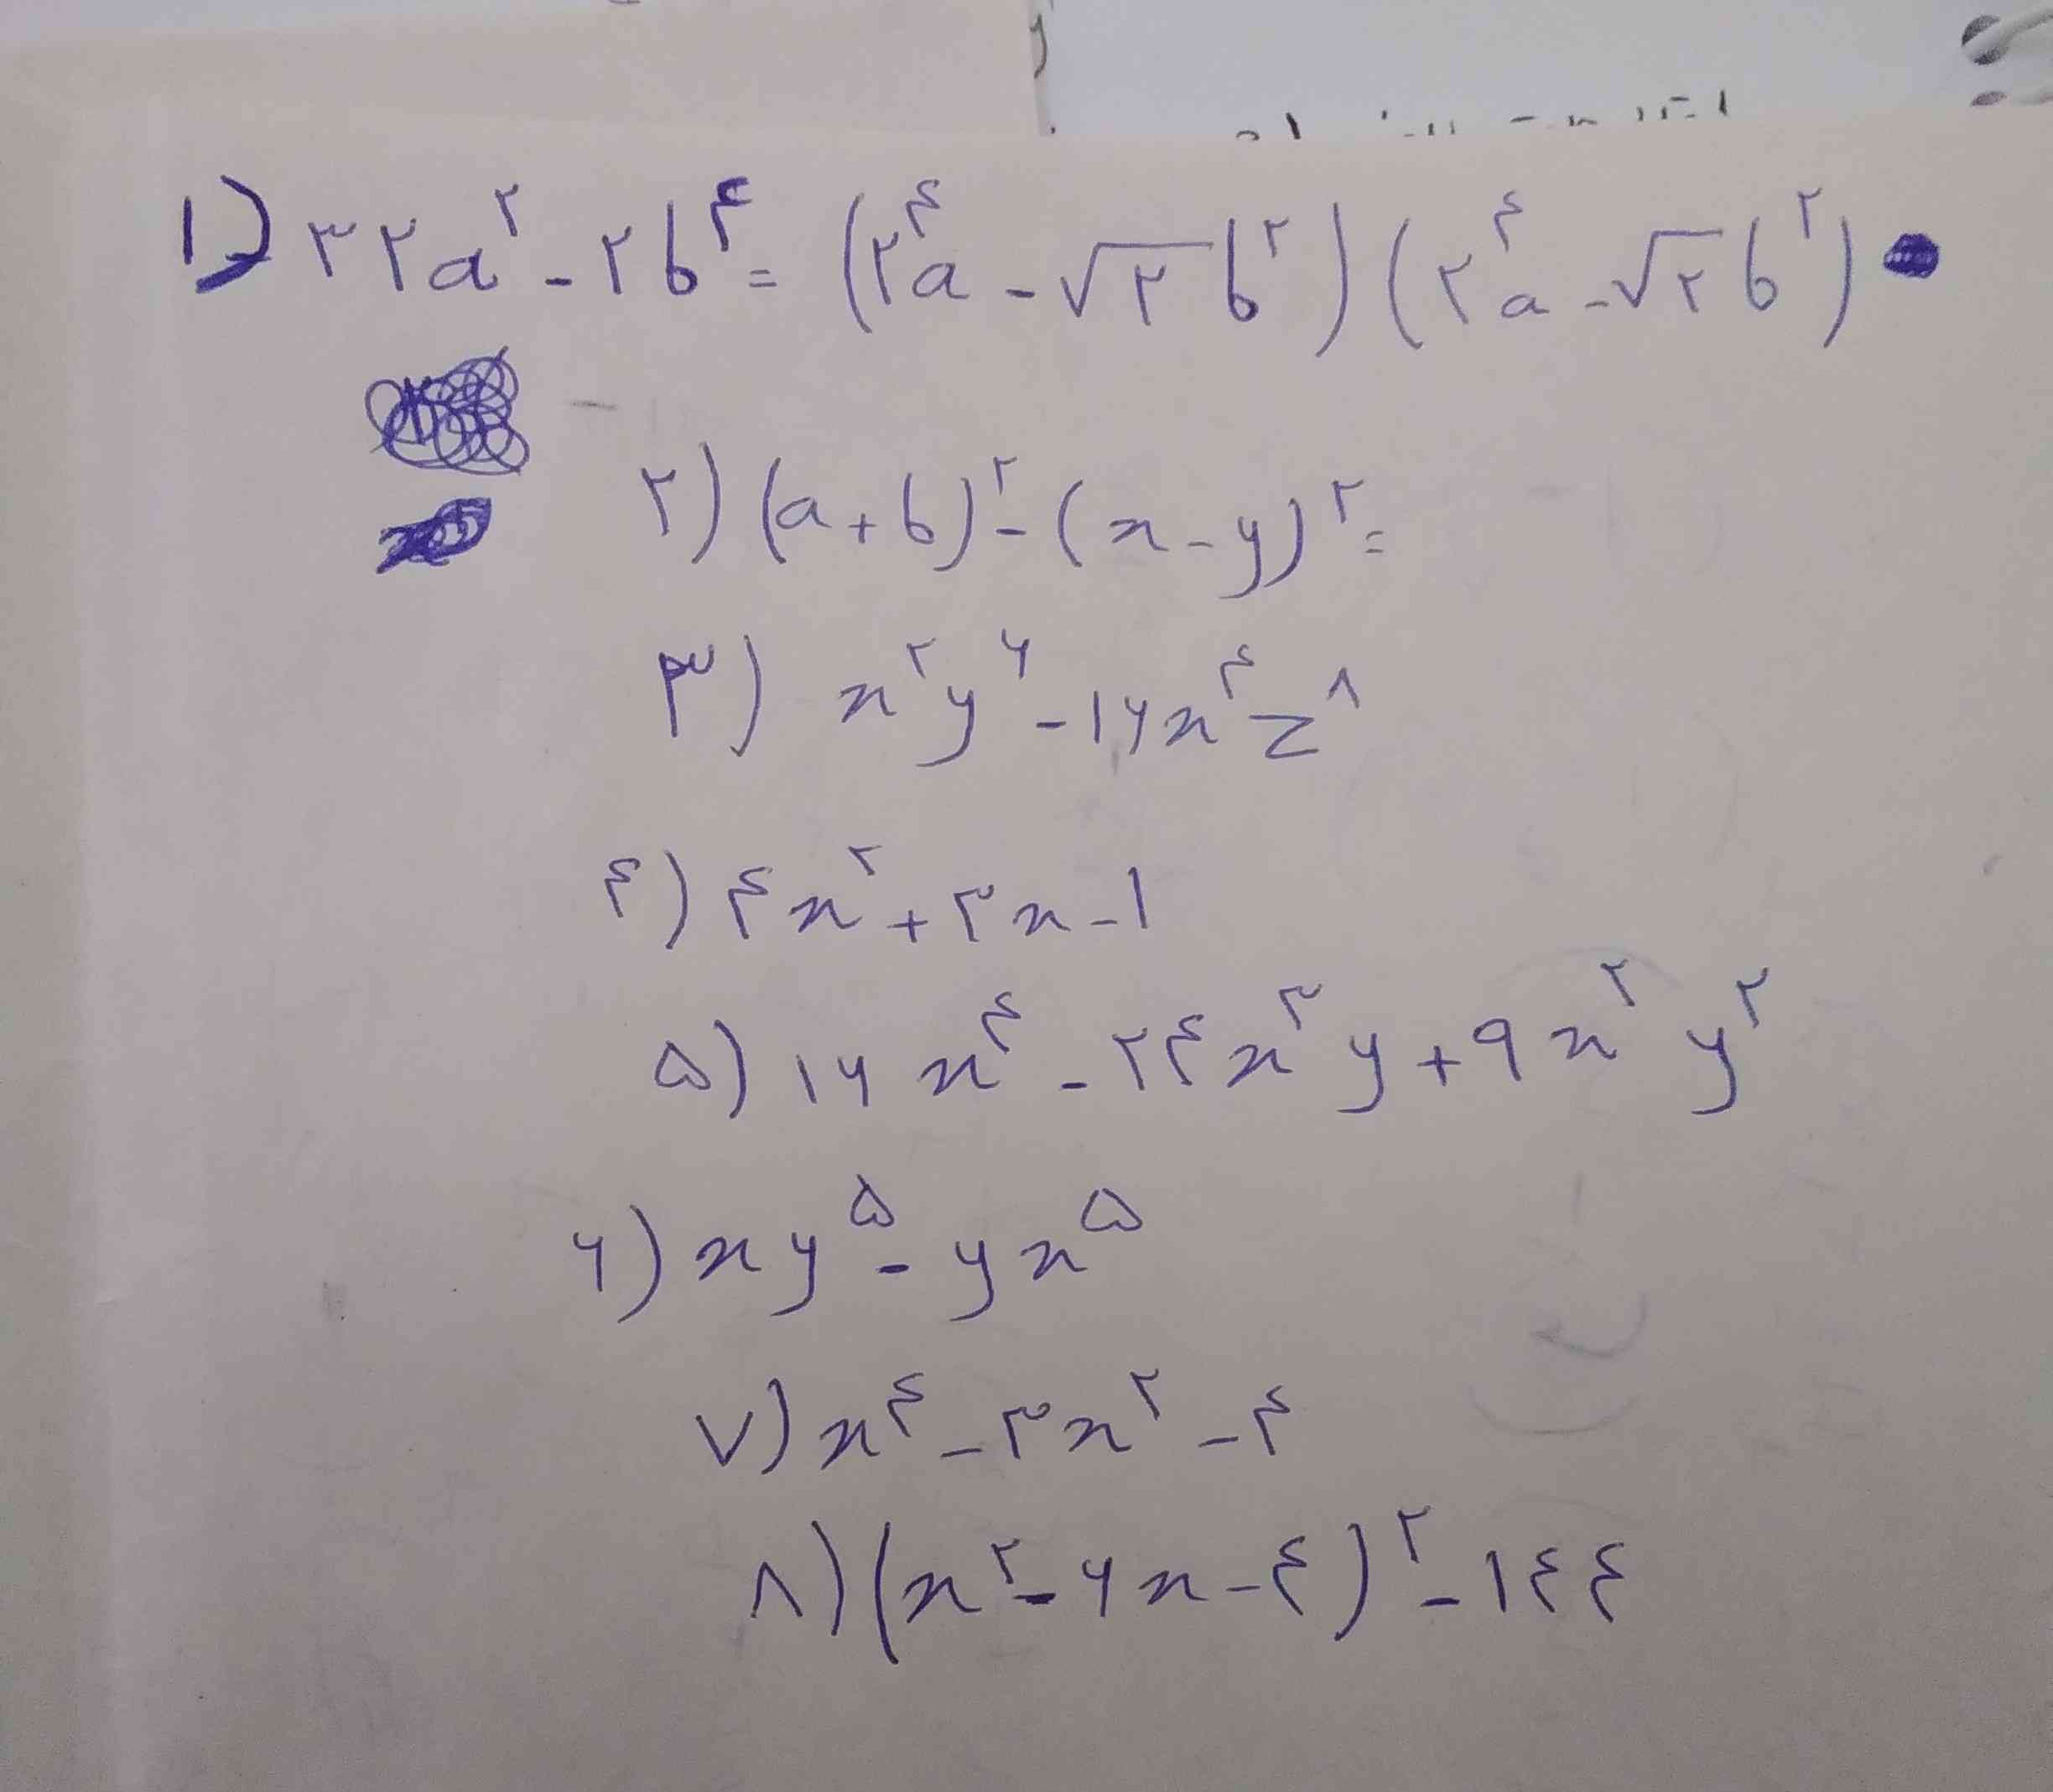 ۱) ۳۲a^۲ - ۲b^۴ = (۲^۴a - √۲ b^۲)(۲^۴a - √۲ b^۲)
۲) (a+b)^۲ - (x-y)^۲ =
۳) x^۲y^۶ - ۱۶x^۴z^۸
۴) ۴x^۲ + ۳x - ۱
۵) ۱۶x^۴ - ۲۴x^۳y + ۹x^۲y^۲
۶) xy^۵ - yx^۵
۷) x^۴ - ۳x^۲ - ۴
۸) (x^۲ - ۶x - ۴)^۲ - ۱۴۴